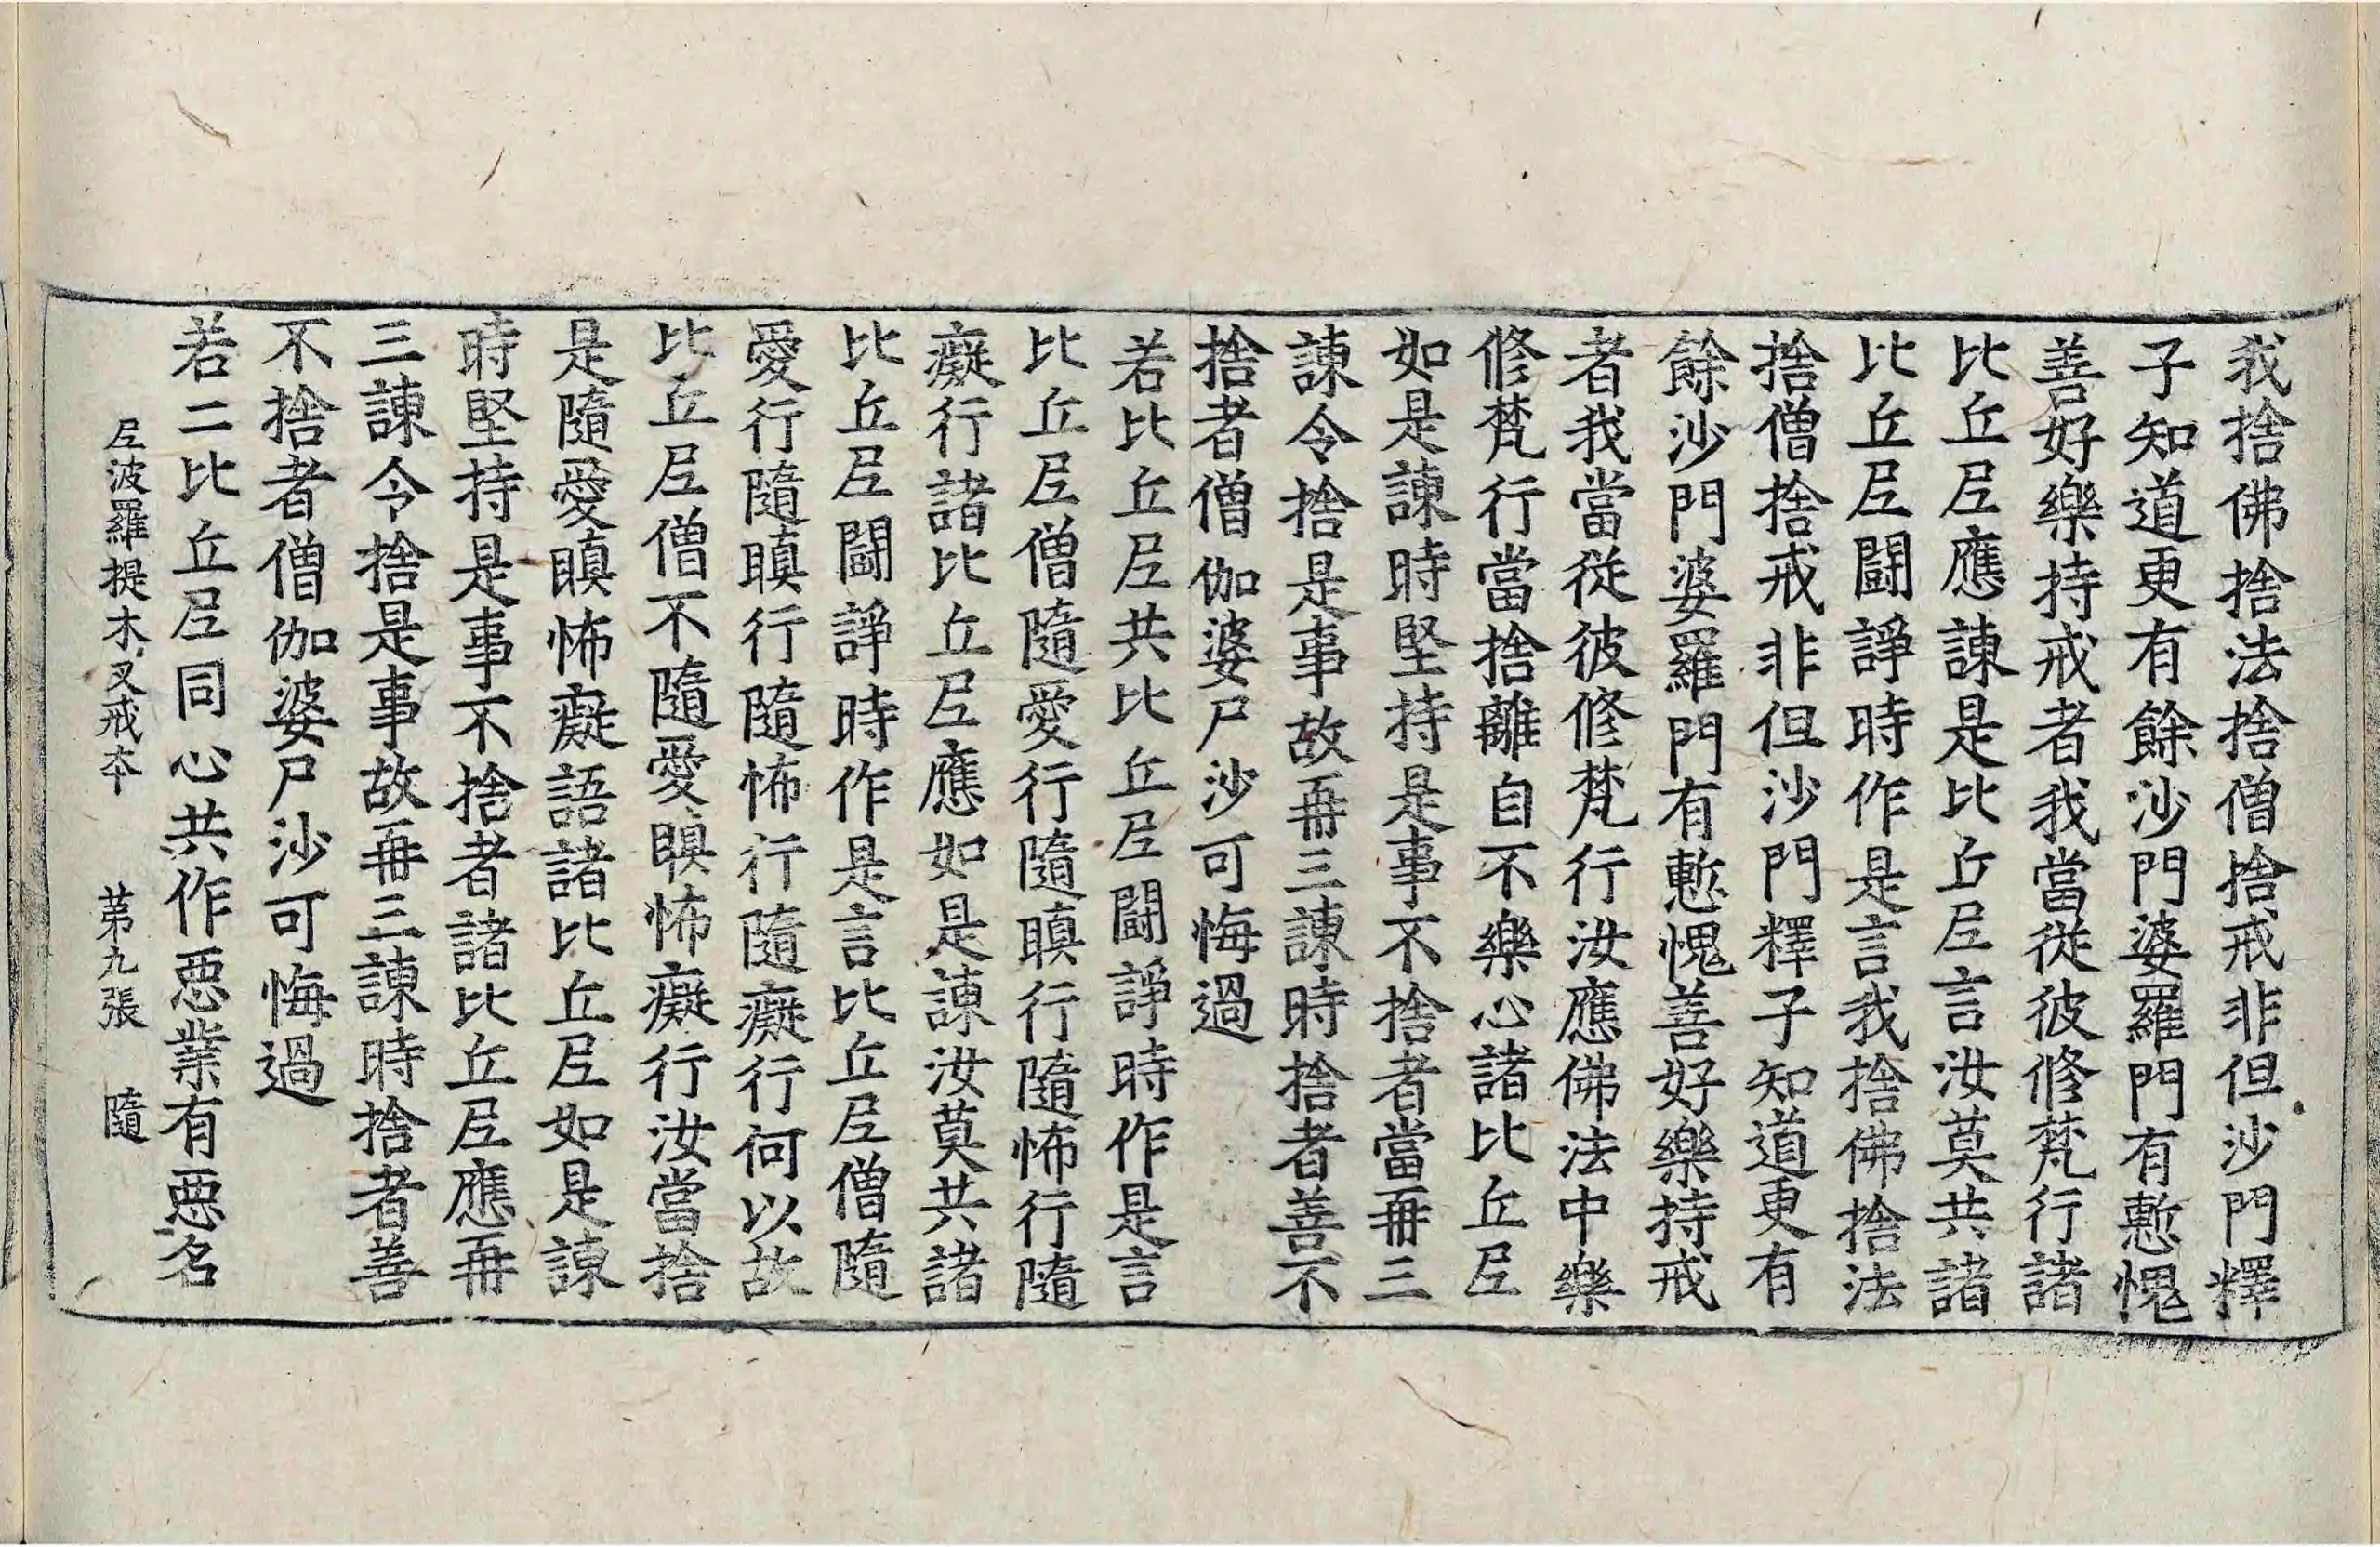 我捨佛捨法捨僧捨戒非但沙門釋
子知道更有餘沙門婆羅門有慙愧
善好樂持戒者我當從彼修梵行諸
比丘尼應諫是比丘尼言汝莫共諸
比丘尼鬪諍時作是言我捨佛捨法
捨僧捨戒非但沙門釋子知道更有
餘沙門婆羅門有慙愧善好樂持戒
者我當從彼修梵行汝應佛法中樂
修梵行當捨離自不樂心諸比丘尼
如是諫時堅持是事不捨者當再三
諫令捨是事故再三諫時捨者善不
捨者僧伽婆尸沙可悔過
若比丘尼共比丘尼鬪諍時作是言
比丘尼僧隨愛行隨瞋行隨怖行隨
癡行諸比丘尼應如是諫汝莫共諸
比丘尼鬪諍時作是言比丘尼僧隨
愛行隨瞋行隨怖行隨癡行何以故
比丘尼僧不隨愛瞋怖癡行汝當捨
是隨愛瞋怖癡語諸比丘尼如是諫
時堅持是事不捨者諸比丘尼應再
三諫令捨是事故再三諫時捨者善
不捨者僧伽婆尸沙可悔過
若二比丘尼同心共作惡業有惡名
尼波羅提木叉戒本 第九張 隨